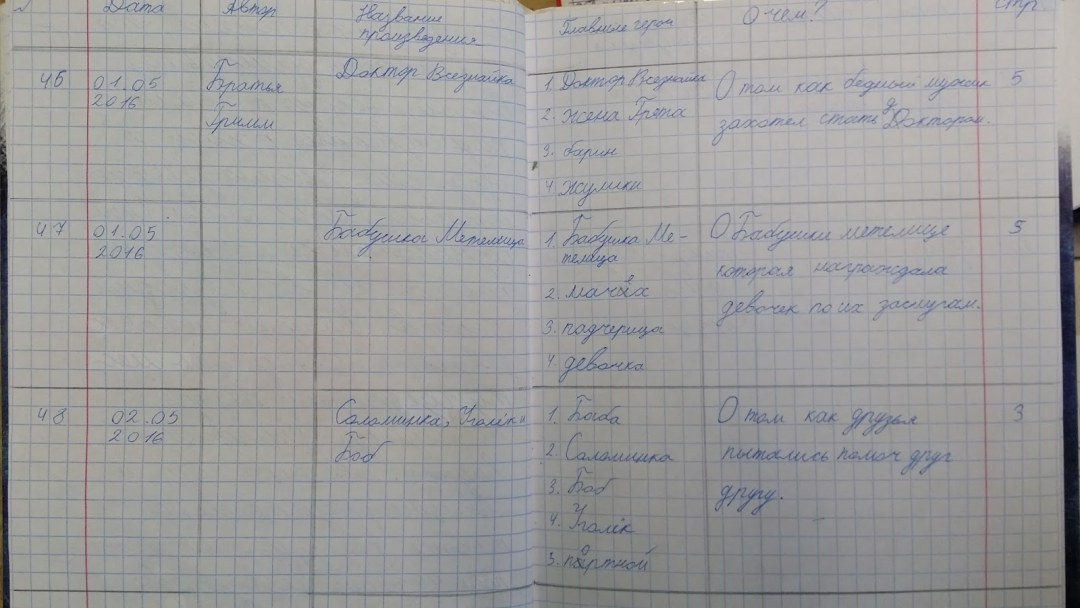 Дата
Автор
Название
произведения
Главные герои
О чем?
стр.
46
01.05
2016
Братья
Гримм
Доктор Всезнайка
1. Доктор Всезнайка
2. жена Грета
3. барин
4 жулики
О том как бедный мужик
захотел стать Доктором.
5
47
01.05
2016
Бабушка Метелица
1. Бабушка Ме-
телица
2. мачеха
3. падчерица
4 девочка
О Бабушки метелице
которая награждала
девочек по их заслугам.
5
48
02.05
2016
Соломинка, Уголік и
Боб
1. Боба
2. Соломинка
3. Боб
4. Уголік
5. портной
О том как друзья
пытались помоч друг
другу.
3